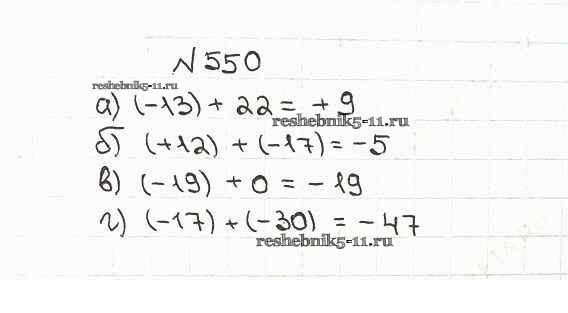 №550
reshebnik5-11.ru
а) (-13) + 22 = + 9
reshebnik5-11.ru
б) (+12) + (-17) = -5
в) (-19) + 0 = -19
г) (-17) + (-30) = -47
reshebnik5-11.ru